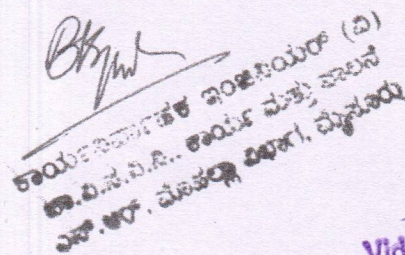 ಕಾರ್ಯನಿರ್ವಾಹಕ ಇಂಜಿನಿಯರ್ (ವಿ)
ಚಾ.ವಿ.ಸ.ನಿ., ಕಾರ್ಯ ಮತ್ತು ಪಾಲನೆ
ಎನ್.ಆರ್. ಮೊಹಲ್ಲಾ ವಿಭಾಗ, ಮೈಸೂರು
Vid